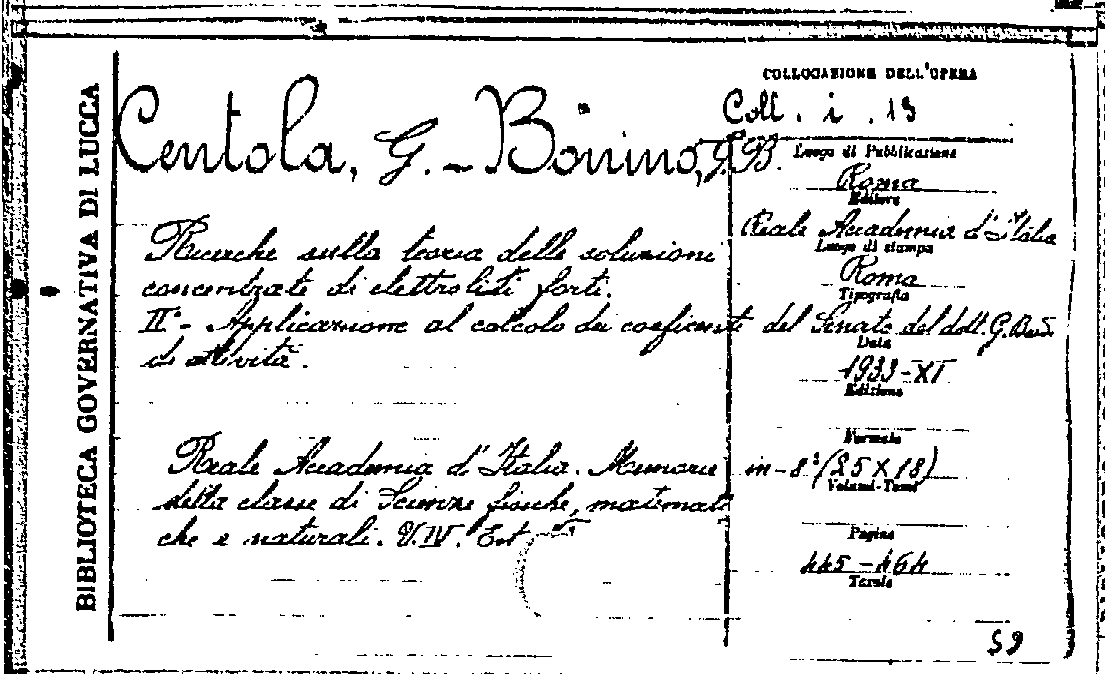 BIBLIOTECA GOVERNATIVA DI LUCCA
Centola, G. - Bonino, G.B.
Ricerche sulla teoria delle soluzioni
concentrate di elettroliti forti.
II° - Applicazione al calcolo dei coefficenti
di attività.
Reale Accademia d'Italia. Memorie
della classe di Scienze fisiche, matemati
che e naturali. V. IV. Est
COLLOCAZIONE DELL'OPERA
Coll. i. 13
Luogo di Pubblicazione
Roma
Editore
Reale Accademia d'Italia
Luogo di stampa
Roma
Tipografia
del Senato del dott. G.
Data
1933-XI
Edizione
Formato
in-8° (25 X 18)
Volumi-Tomi
Pagine
445-464
Tavole
59